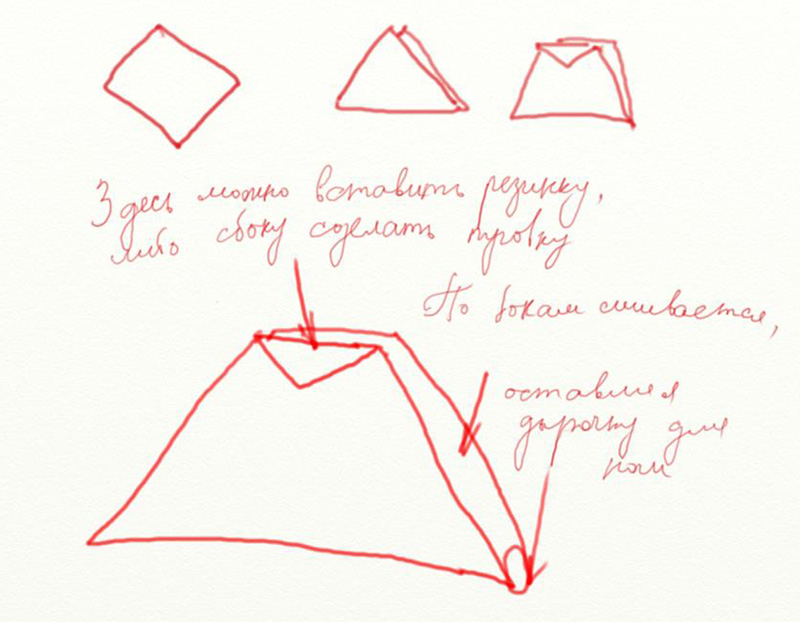 Здесь можно вставить резинку,
либо сбоку сделать пуговку
По бокам сшивается,
оставляя
дырочку для
ноги